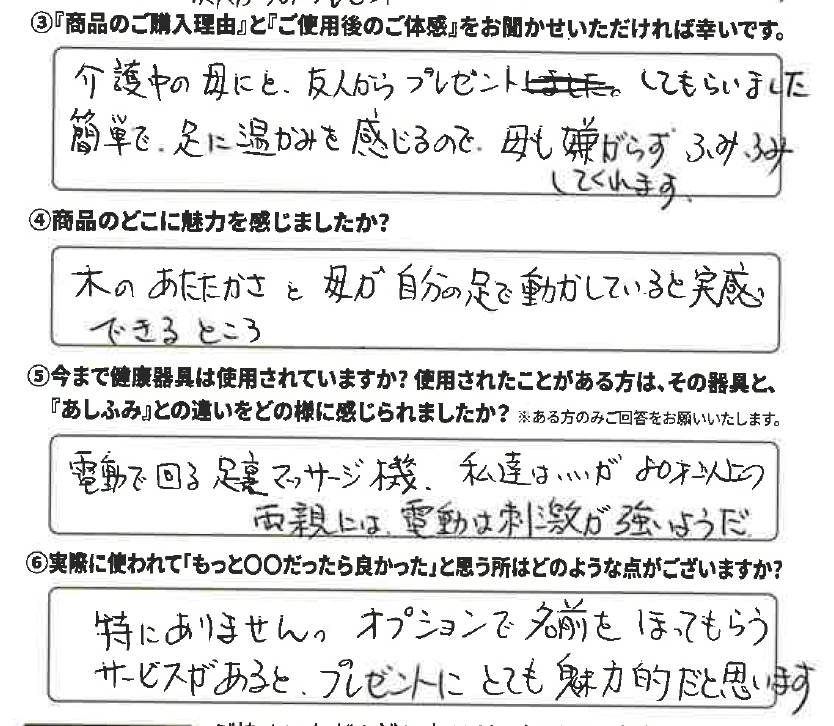 ③『商品のご購入理由』と『ご使用後のご体感』をお聞かせいただければ幸いです。
介護中の母にと、友人からプレゼントしてもらいました
簡単で、足に温かみを感じるので、母も嫌がらずふみふみ
してくれます。
④商品のどこに魅力を感じましたか?
木のあたたかさと母が自分の足で動かしていると実感
できるところ
⑤今まで健康器具は使用されていますか?使用されたことがある方は、その器具と、
『あしふみ』との違いをどの様に感じられましたか?※ある方のみご回答をお願いいたします。
電動で回る足裏マッサージ機、私達はいいが80才以上の
両親には、電動は刺激が強いようだ
⑥実際に使われて「もっと〇〇だったら良かった」と思う所はどのような点がございますか?
特にありません。オプションで名前をほってもらう
サービスがあると、プレゼントにとても魅力的だと思います